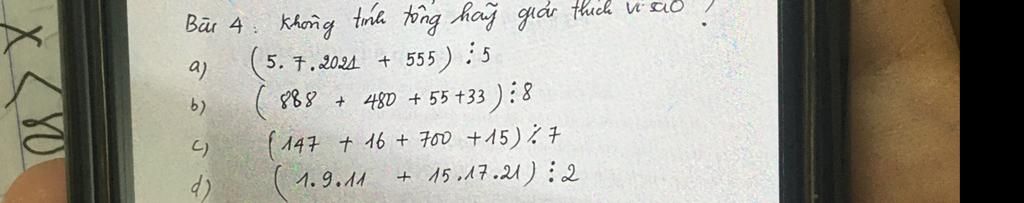 Bài 4: Không tính tổng hãy giải thích vì sao?
a) (5.7.2021 + 555) ⋮ 5
b) (888 + 480 + 55 + 33) ⋮ 8
c) (147 + 16 + 700 + 15) ⋮̸ 7
d) (1.9.11 + 15.17.21) ⋮ 2
X < 80